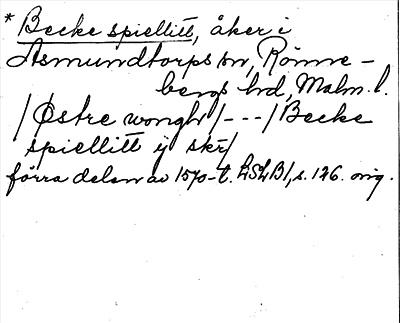 * Becke spiellitt, åker i
Asmundtorps sn, Rönne-
bergs hd, Malm. l.
/Østre wongh/---/Becke
spiellitt ij skr/
förra delen av 1570-t. LSLB1, s. 126. orig.